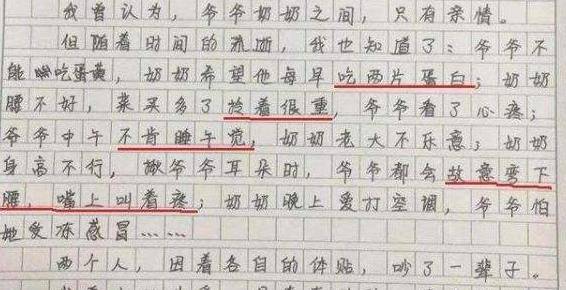 我曾认为，爷爷奶奶之间，只有亲情。
但随着时间的流逝，我也知道了：爷爷不
能吃蛋黄，奶奶希望他每早吃两片蛋白；奶奶
腰不好，菜买多了拎着很重，爷爷看了心疼；
爷爷中午不肯睡午觉，奶奶老大不乐意；奶奶
身高不行，揪爷爷耳朵时，爷爷都会故意弯下
腰，嘴上叫着疼；奶奶晚上爱打空调，爷爷怕
她受冻感冒……
两个人，因着各自的体贴，吵了一辈子。